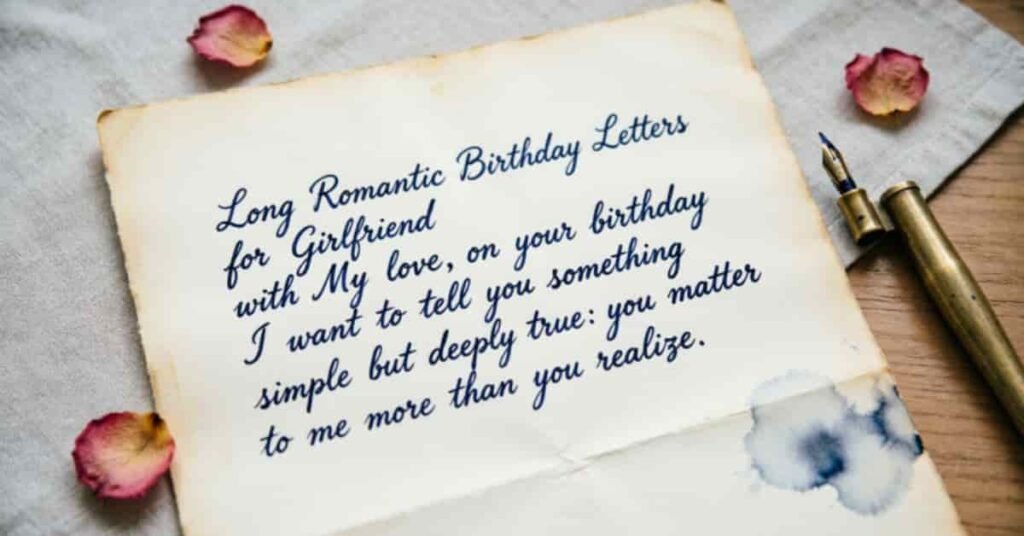 Long Romantic Birthday Letters
for Girlfriend
with My love, on your birthday
I want to tell you something
simple but deeply true: you matter
to me more than you realize.